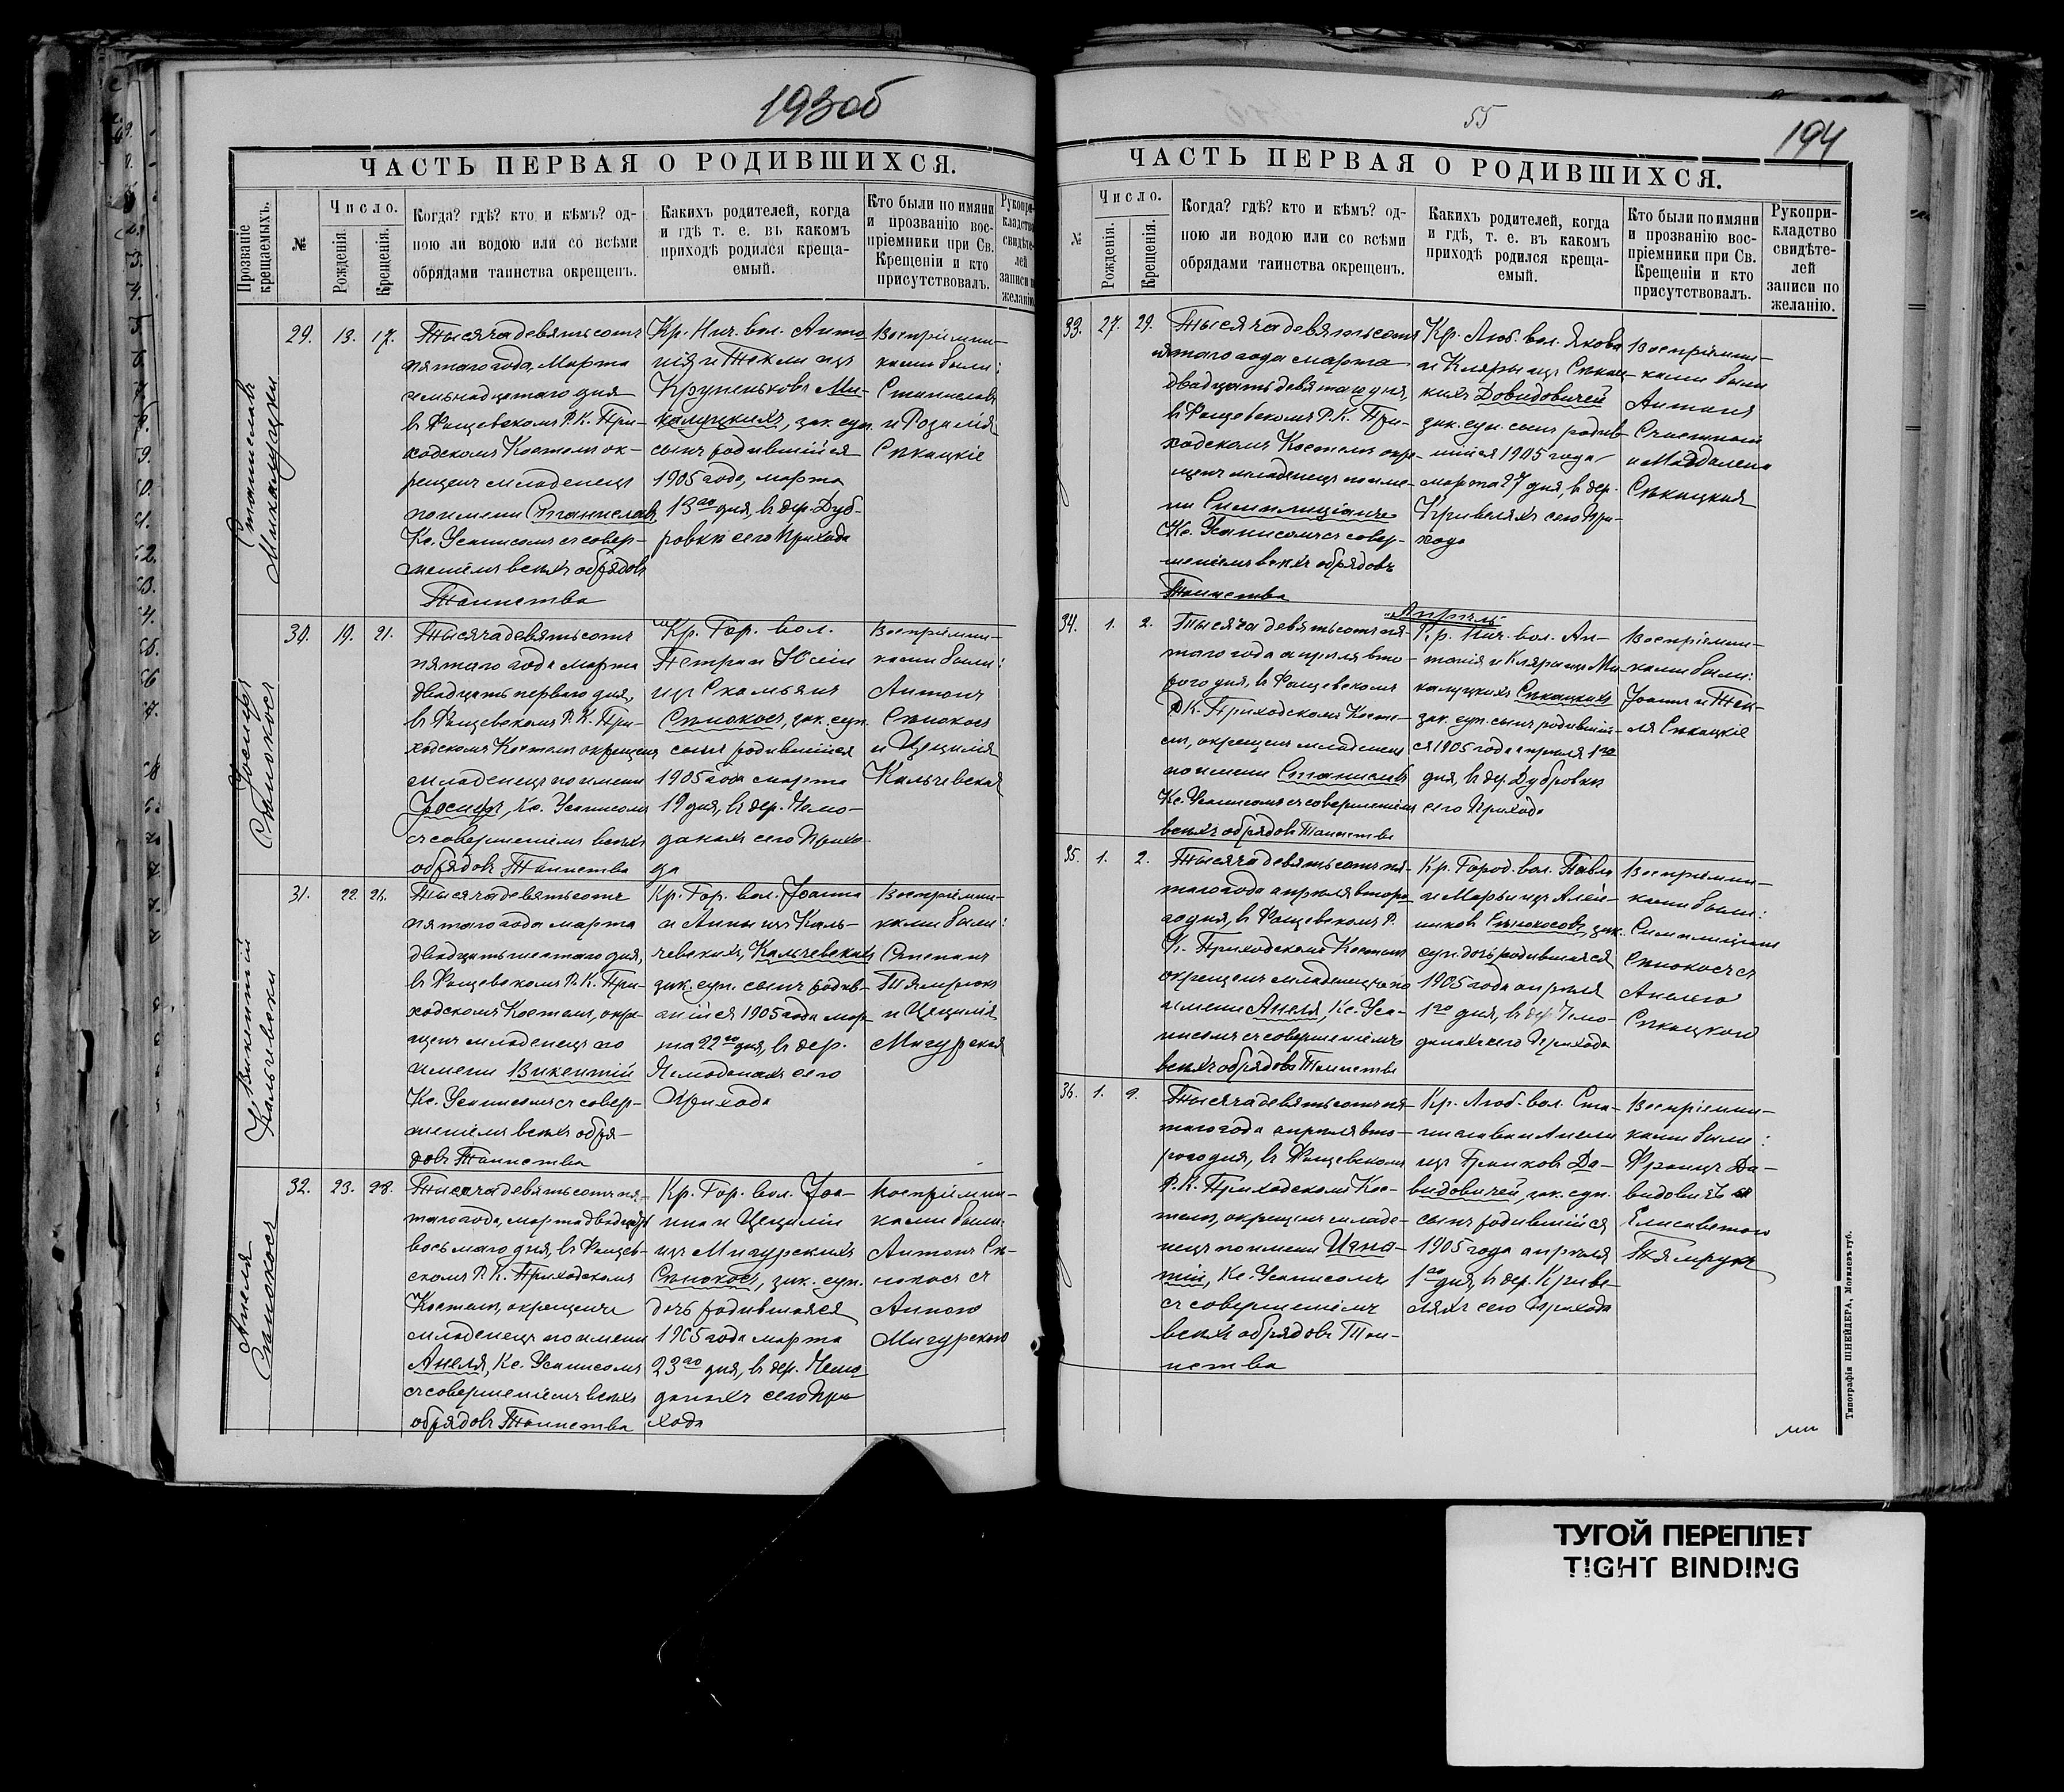 193об
ЧАСТЬ ПЕРВАЯ О РОДИВШИХСЯ.
Прозвание крещаемыхъ.
№
Число.
Рожденія.
Крещенія.
Когда? гдѣ? кто и кѣмъ? од-
ною ли водою или со всѣми
обрядами таинства окрещенъ.
Какихъ родителей, когда
и гдѣ т. е. въ какомъ
приходѣ родился креща-
емый.
Кто были по имяни
и прозванію вос-
пріемники при Св.
Крещеніи и кто
присутствовалъ.
Рукопри-
кладство
свидѣте-
лей
записи по
желанію
Станиславъ
Михалуцки
29. 13. 17.
Тысяча девятьсотъ
пятаго года, Марта
семьнадцатаго дня
въ Фащевскомъ Р. К. При-
ходскомъ Костелѣ ок-
рещенъ младенецъ
по имени Станиславъ,
Кс. Усаписомъ съ совер-
шеніемъ всѣхъ обрядовъ
Таинства
Кр. Нич. вол. Анто
нія и Текли изъ
Михалуцкихъ, зак. суп.
сынъ родившійся
1905 года, марта
13го дня, въ дер. Дуб-
ровкѣ сего прихода
Воспріемни-
ками были:
Станиславъ
и Розалія
Сѣкацкіе
Іосифъ
Сѣнокосъ
30. 19. 21.
Тысяча девятьсотъ
пятаго года марта
двадцать перваго дня,
въ Фащевскомъ Р. К. При-
ходскомъ Костелѣ окрещенъ
младенецъ по имени
Іосифъ, Кс. Усаписомъ
съ совершеніемъ всѣхъ
обрядовъ Таинства
Кр. Гор. вол.
Петра и Юліи
изъ Скамьянъ
Сѣнокосъ, зак. суп.
сынъ родившійся
1905 года марта
19 дня, въ дер. Чемо-
данахъ сего прихо-
да
Воспріемни-
ками были:
Антонъ
Сѣнокосъ
и Цецилія
Кальчевская
Викентій
Кальчевски
31. 22. 26.
Тысяча девятьсотъ
пятаго года марта
двадцать шестаго дня,
въ Фащевскомъ Р. К. При-
ходскомъ Костелѣ, окре-
щенъ младенецъ по
имени Викентій
Кс. Усаписомъ съ совер-
шеніемъ всѣхъ обря-
довъ Таинства
Кр. Гор. вол. Іоанна
и Анны изъ Каль-
чевскихъ, Кальчевскихъ
зак. суп. сынъ родив-
шійся 1905 года мар-
та 22го дня, въ дер.
Чемоданахъ сего
Прихода
Воспріемни-
ками были:
Степанъ
Тямрюкъ
и Цецилія
Мигурская
Анеля
Сѣнокосъ
32. 23. 28.
Тысяча девятьсотъ пя-
таго года, марта двадцать
восьмаго дня, въ Фащев-
скомъ Р. К. Приходскомъ
Костелѣ, окрещенъ
младенецъ по имени
Анеля, Кс. Усаписомъ
съ совершеніемъ всѣхъ
обрядовъ Таинства
Кр. Гор. вол. Іоа-
нна и Цециліи
изъ Мигурскихъ
Сѣнокосъ, зак. суп.
дочь родившаяся
1905 года марта
23го дня, въ дер. Чемо
данахъ сего при
хода
Воспріемни-
ками были:
Антонъ Сѣ-
нокосъ съ
Анною
Мигурскою
55
194
ЧАСТЬ ПЕРВАЯ О РОДИВШИХСЯ.
№
Число.
Рожденія.
Крещенія.
Когда? гдѣ? кто и кѣмъ? од-
ною ли водою или со всѣми
обрядами таинства окрещенъ.
Какихъ родителей, когда
и гдѣ, т. е. въ какомъ
приходѣ родился креща-
емый.
Кто были по имяни
и прозванію вос-
пріемники при Св.
Крещеніи и кто
присутствовалъ.
Рукопри-
кладство
свидѣте-
лей
записи по
желанію.
33. 27. 29.
Тысяча девятьсотъ
пятаго года марта
двадцать девятаго дня,
въ Фащевскомъ Р. К. При-
ходскомъ Костелѣ окре-
щенъ младенецъ по име-
ни Симплиціанъ
Кс. Усаписомъ съ совер-
шеніемъ всѣхъ обрядовъ
Таинства
Кр. Люб. вол. Якова
и Клары изъ Сѣкац-
кихъ Довидовичей
зак. суп. сынъ родив-
шійся 1905 года
марта 27 дня, въ дер.
Кривеляхъ сего при-
хода
Воспріемни-
ками были
Антонъ
и Магдалена
Сѣкацкая
Апрѣль
34. 1. 2.
Тысяча девятьсотъ пя-
таго года апрѣля вто-
рого дня, въ Фащевскомъ
Р. К. Приходскомъ Косте-
лѣ, окрещенъ младенецъ
по имени Станиславъ
Кс. Усаписомъ съ совершеніемъ
всѣхъ обрядовъ Таинства
Кр. Нич. вол. Ан-
тонія и Клары изъ Ми-
халуцкихъ Сѣкацкихъ
зак. суп. сынъ родивший-
ся 1905 года апрѣля 1го
дня, въ дер. Дубровкѣ
сего прихода
Воспріемни-
ками были:
Іоаннъ и Тек-
ля Сѣкацкіе
35. 1. 2.
Тысяча девятьсотъ пя-
таго года апрѣля второ-
го дня, въ Фащевскомъ Р.
К. Приходскомъ Костелѣ
окрещенъ младенецъ по
имени Анеля, Кс. Уса-
писомъ съ совершеніемъ
всѣхъ обрядовъ Таинства
Кр. Город. вол. Павла
и Марьи изъ Алей-
никовъ Сѣнокосовъ, зак.
суп. дочь родившаяся
1905 года апрѣля
1го дня, въ дер. Чемо-
данахъ сего Прихода
Воспріемни-
ками были:
Симплиціанъ
Сѣнокосъ съ
Анелею
Сѣкацкою
36. 1. 2.
Тысяча девятьсотъ пя-
таго года апрѣля вто-
рого дня, въ Фащевскомъ
Р. К. Приходскомъ Кос-
телѣ, окрещенъ младе-
нецъ по имени Игна-
тій, Кс. Усаписомъ
съ совершеніемъ
всѣхъ обрядовъ Таи-
нства
Кр. Люб. вол. Ста-
нислава и Анели
изъ Гриковъ Да-
видовичей, зак. суп.
сынъ родившійся
1905 года апрѣля
1го дня, въ дер. Криве-
ляхъ сего Прихода
Воспріемни-
ками были:
Францъ Да-
видовичъ съ
Елисаветою
Тямрукъ
Типографія ШНЕЙДЕРА, Могилевъ губ.
ТУГОЙ ПЕРЕПЛЕТ
TIGHT BINDING